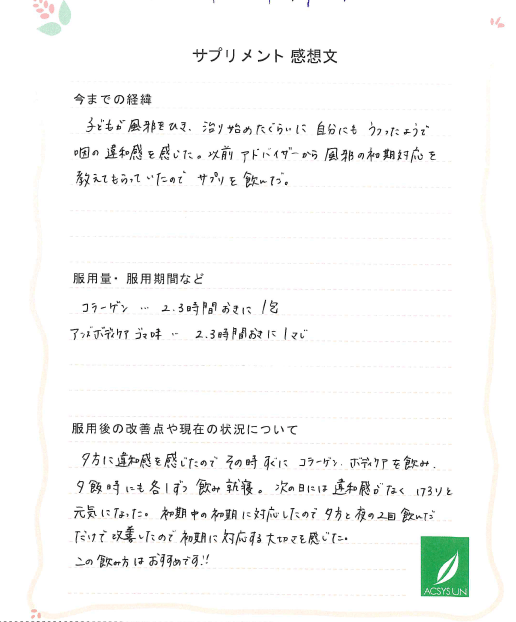 サプリメント 感想文
今までの経緯
子どもが風邪をひき、治り始めたぐらいに 自分にも うつったようで
咽の違和感を感じた。以前 アドバイザーから 風邪の初期対応を
教えてもらっていたので サプリを飲んだ。
服用量・服用期間など
コラーゲン … 2.3時間おきに 1包
アンズボディケア ゴマ味 … 2.3時間おきに 1さじ
服用後の改善点や現在の状況について
夕方に違和感を感じたので その時すぐに コラーゲン、ボディケアを飲み、
夕飯時にも各1ずつ 飲み就寝。次の日には違和感がなく けろりと
元気になった。初期中の初期に対応したので 夕方と夜の2回飲んだ
だけで改善したので初期に対応する大切さを感じた。
この飲み方はおすすめです!!
ACSYSUN